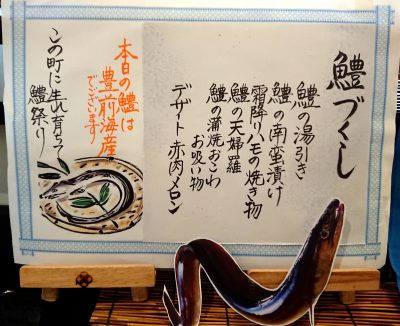 鱧づくし
鱧の湯引き
鱧の南蛮漬け
霜降りハモの焼き物
鱧の天婦羅
鱧の蒲焼おこわ
お吸い物
デザート 赤肉メロン
本日の鱧は
豊前海産
でございます
この町に生れ育った
鱧祭り